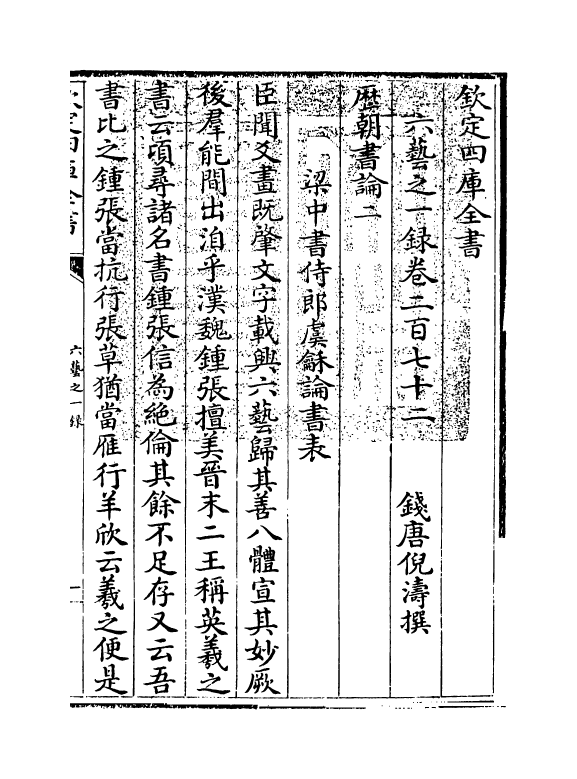 欽定四庫全書
六藝之一錄卷二百七十二
錢唐倪濤撰
歴朝書論二
梁中書侍郎虞龢論書表
臣聞爻畫既肇文字載興六藝歸其善八體宣其妙厥
後羣能間出洎乎漢魏鍾張擅美晉末二王稱英羲之
書云頃尋諸名書鍾張信為絶倫其餘不足存又云吾
書比之鍾張當抗行張草猶當雁行羊欣云羲之便是
欽定四庫全書
六藝之一錄
一